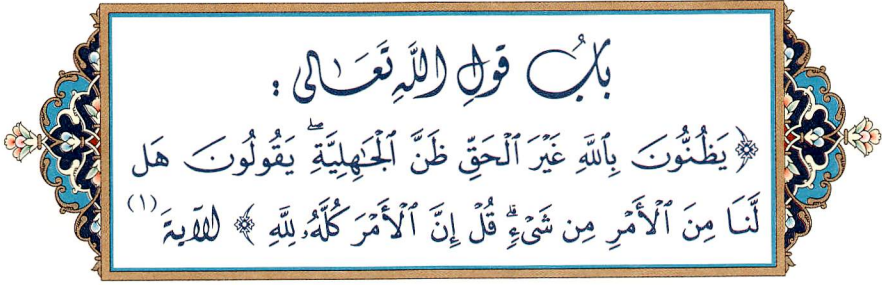 بَابُ قَوْلِ اللَّهِ تَعَالَى :
﴿ يَظُنُّونَ بِٱللَّهِ غَيْرَ ٱلْحَقِّ ظَنَّ ٱلْجَٰهِلِيَّةِۖ يَقُولُونَ هَل
لَّنَا مِنَ ٱلْأَمْرِ مِن شَىْءٍۗ قُلْ إِنَّ ٱلْأَمْرَ كُلَّهُۥ لِلَّهِ ﴾ الآيَةَ (١)